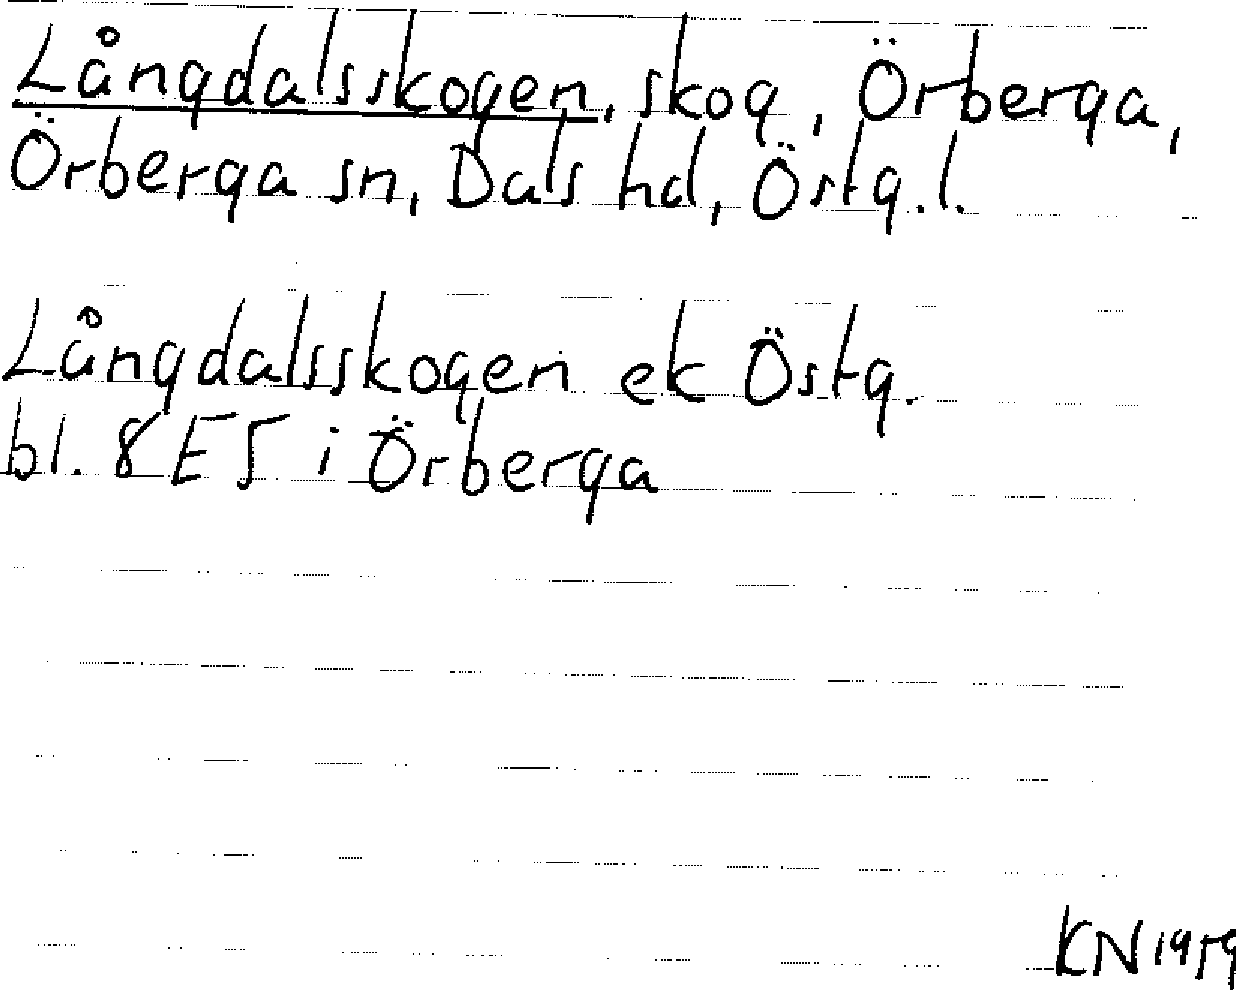 Långdalsskogen, skog, Örberga,
Örberga sn, Dals hd, Östg.l.
Långdalsskogen ek Östg.
bl. 8 E5 i Örberga
KN 1959